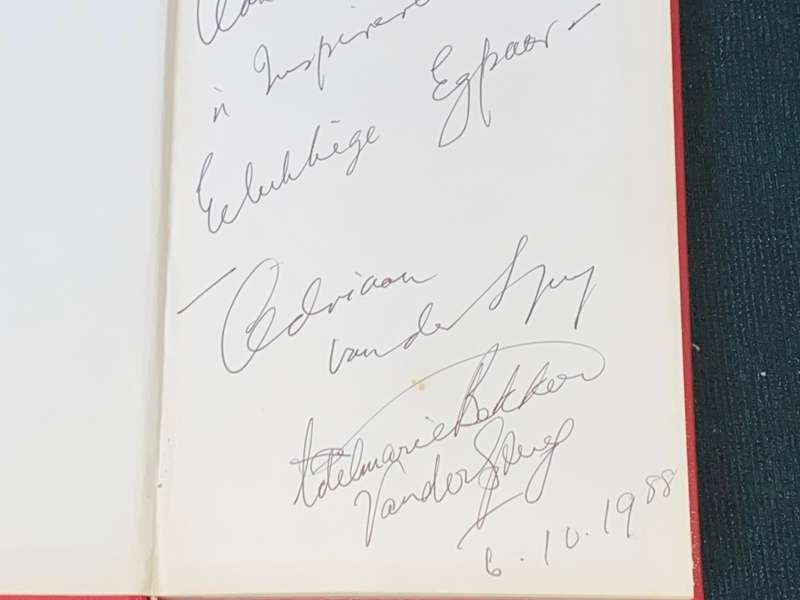 'n Inspirerende
Gelukkige Egpaar -
- Adriaan
van der Spuy
Adelmarie Bekker
Van der Spuy
6.10.1988